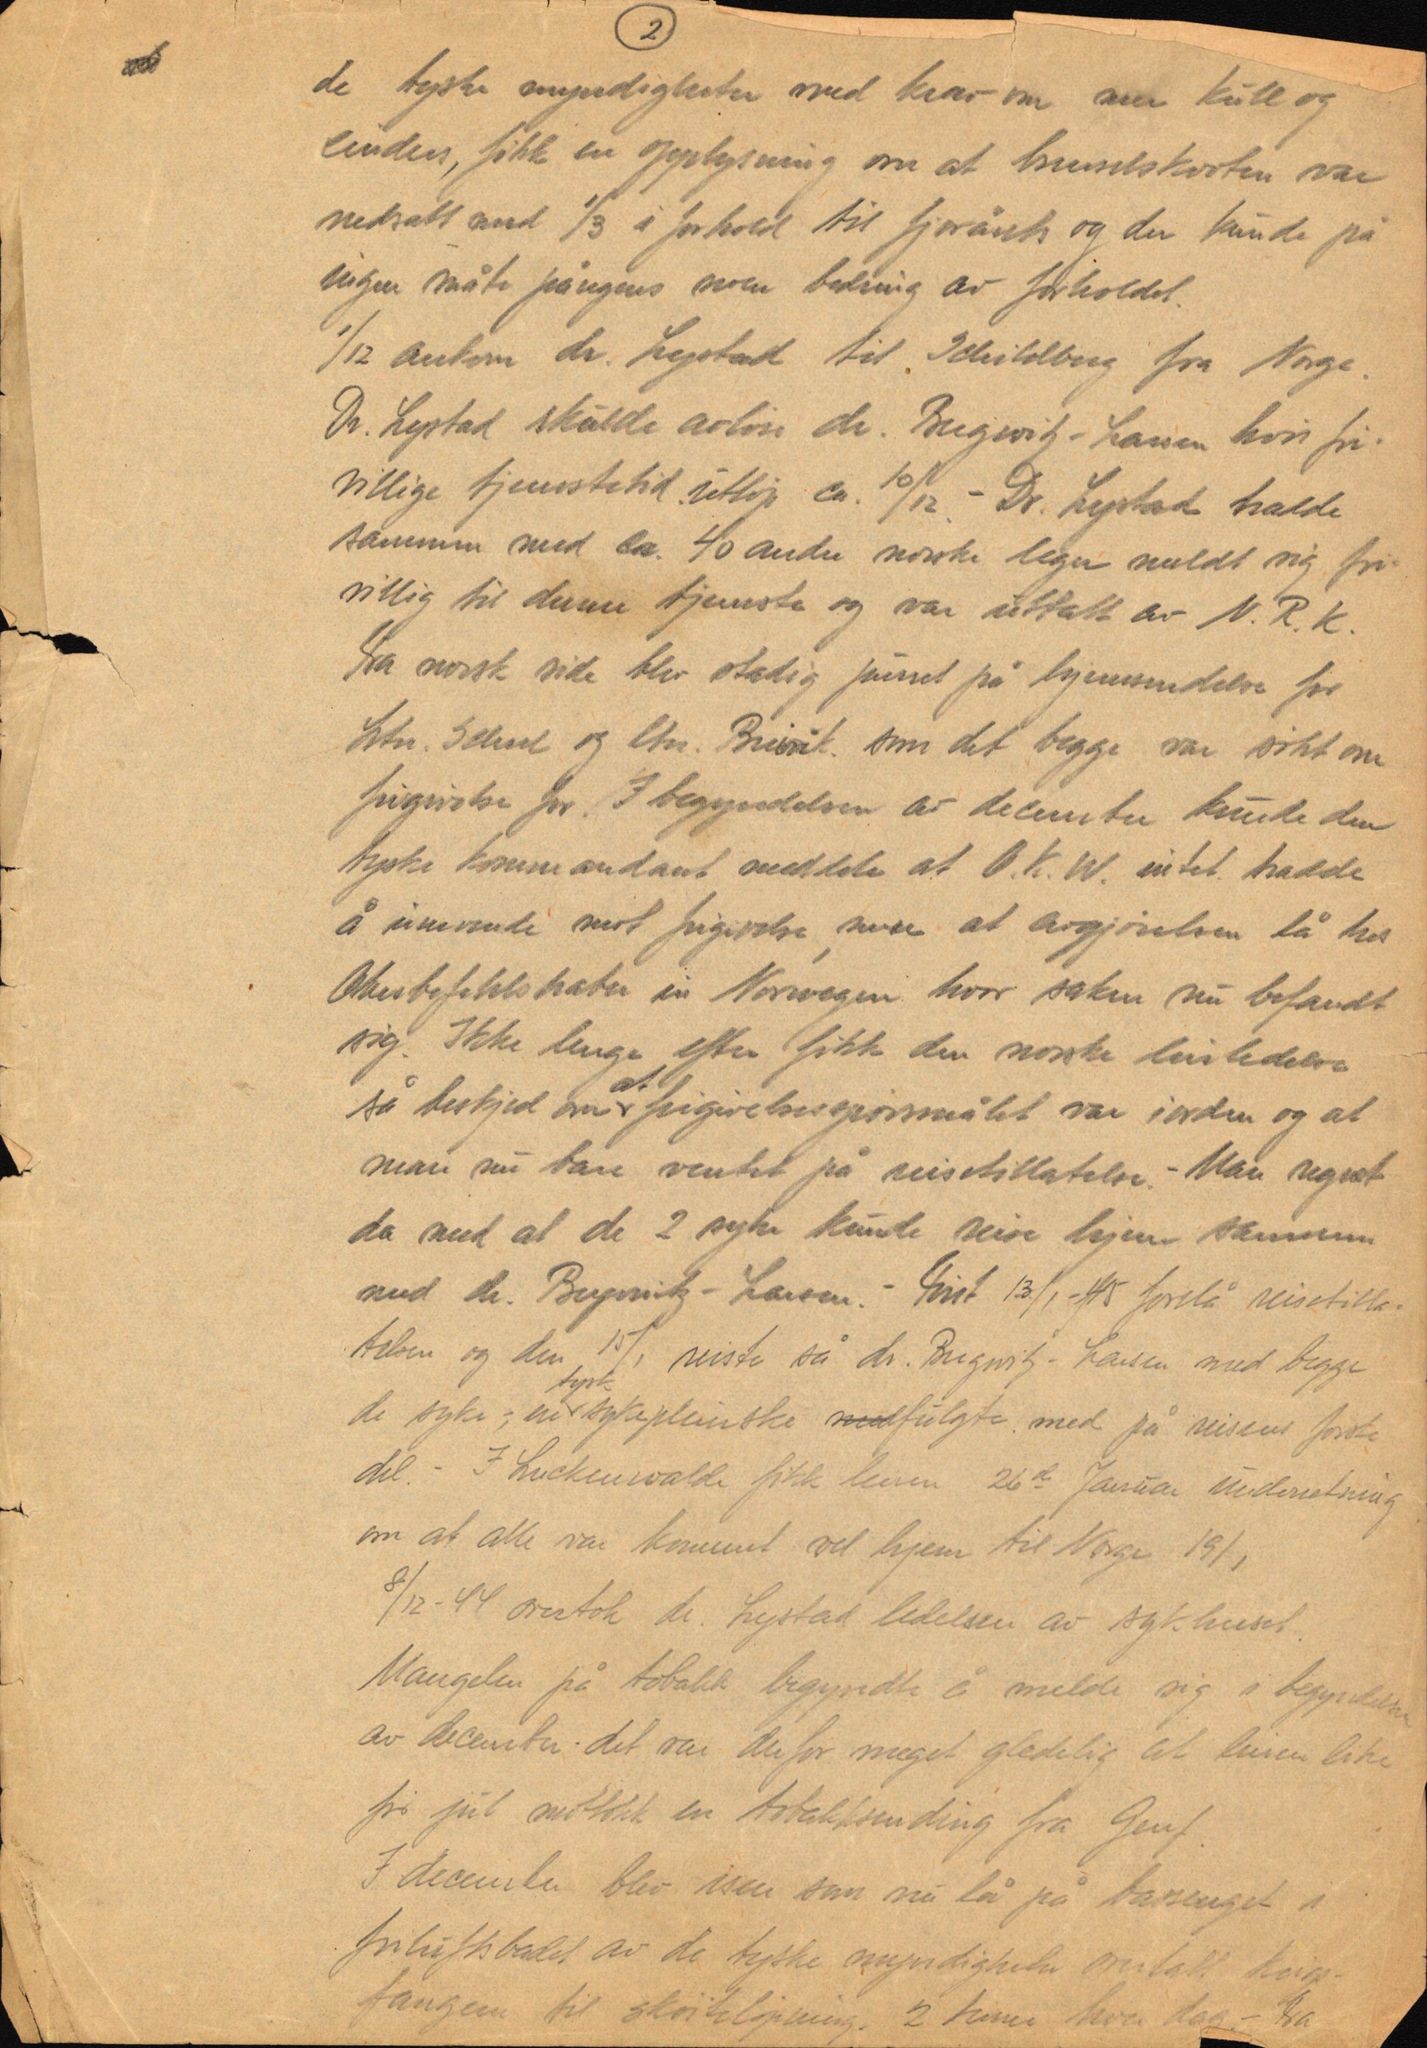 2
de tyske myndigheter med krav om mer kull og
cinders, fikk en opplysning om at brenselskvoten var
nedsatt med 1/3 i forhold til fjorårets og der kunde på
ingen måte påregnes noen bedring av forholdet.
1/12 ankom dr. Lystad til Schildberg fra Norge.
Dr. Lystad skulde avløse dr. Bugwitz-Larsen hvis fri-
villige tjenestetid utløp ca. 10/12. - Dr. Lystad hadde
sammen med ca. 40 andre norske leger meldt sig fri-
villig til denne tjeneste og var uttatt av N.R.K.
Fra norsk side blev stadig purret på hjemsendelse for
Ltn. og ltn. Breivik. som det begge var søkt om
frigivelse for. I begynnelsen av december kunde den
tyske kommandant meddele at O.K.W. intet hadde
å innvende mot frigivelse, men at avgjørelsen lå hos
Oberbefehlshaber in Norwegen hvor saken nu befandt
sig. Ikke lenge efter fikk den norske leirledelse
så beskjed om at frigivelsesspørsmålet var iorden og at
man nu bare ventet på reisetillatelse. - Man regnet
da med at de 2 syke kunde reise hjem sammen
med dr. Bugwitz-Larsen. - Først 13/1-45 forelå reisetilla-
telsen og den 15/1 reiste så dr. Bugwitz-Larsen med begge
de syke; en tysk sykepleierske fulgte med på reisens første
del. - I Luckenwalde fikk leiren 26de Januar underretning
om at alle var kommet vel hjem til Norge 19/1
8/12-44 overtok dr. Lystad ledelsen av sykehuset.
Mangelen på tobakk begyndte å melde sig i begyndelsen
av december. det var derfor meget gledelig at leiren like
før jul mottok en tobakksending fra Genf.
I december blev isen som nu lå på bassenget i
friluftsbadet av de tyske myndigheter overlatt krigs-
fangene til skøiteløpning. 2 timer hver dag. - Fra